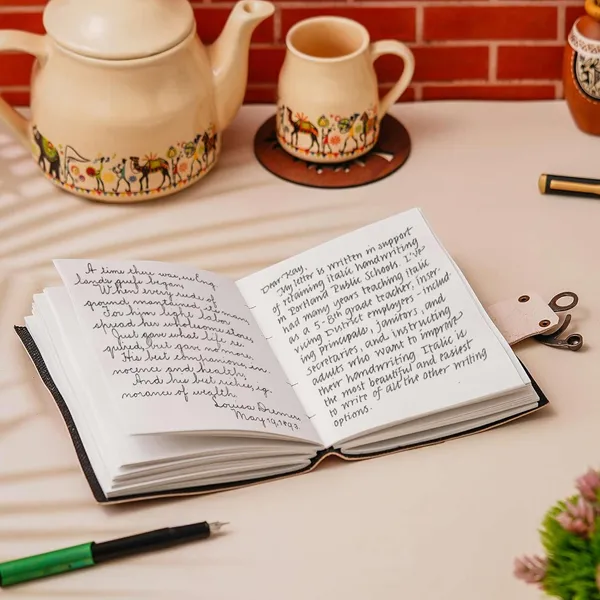 A time there was, ere Eng
land's griefs began,
When every rood of
ground maintained its man;
For him light labor
spread her wholesome store,
Just gave what life re
quired, but gave no more;
His best companions, in
nocence and health;
And his best riches, ig
norance of wealth.
Louisa
May 19, 1893.
Dear Kay,
My letter is written in support
of retaining italic handwriting
in Portland Public Schools. I've
had many years teaching italic
as a 5-8th grade teacher, inser-
vicing District employees - includ-
ing principals, janitors, and
secretaries, and instructing
adults who want to improve
their handwriting. Italic is
the most beautiful and easiest
to write of all the other writing
options.